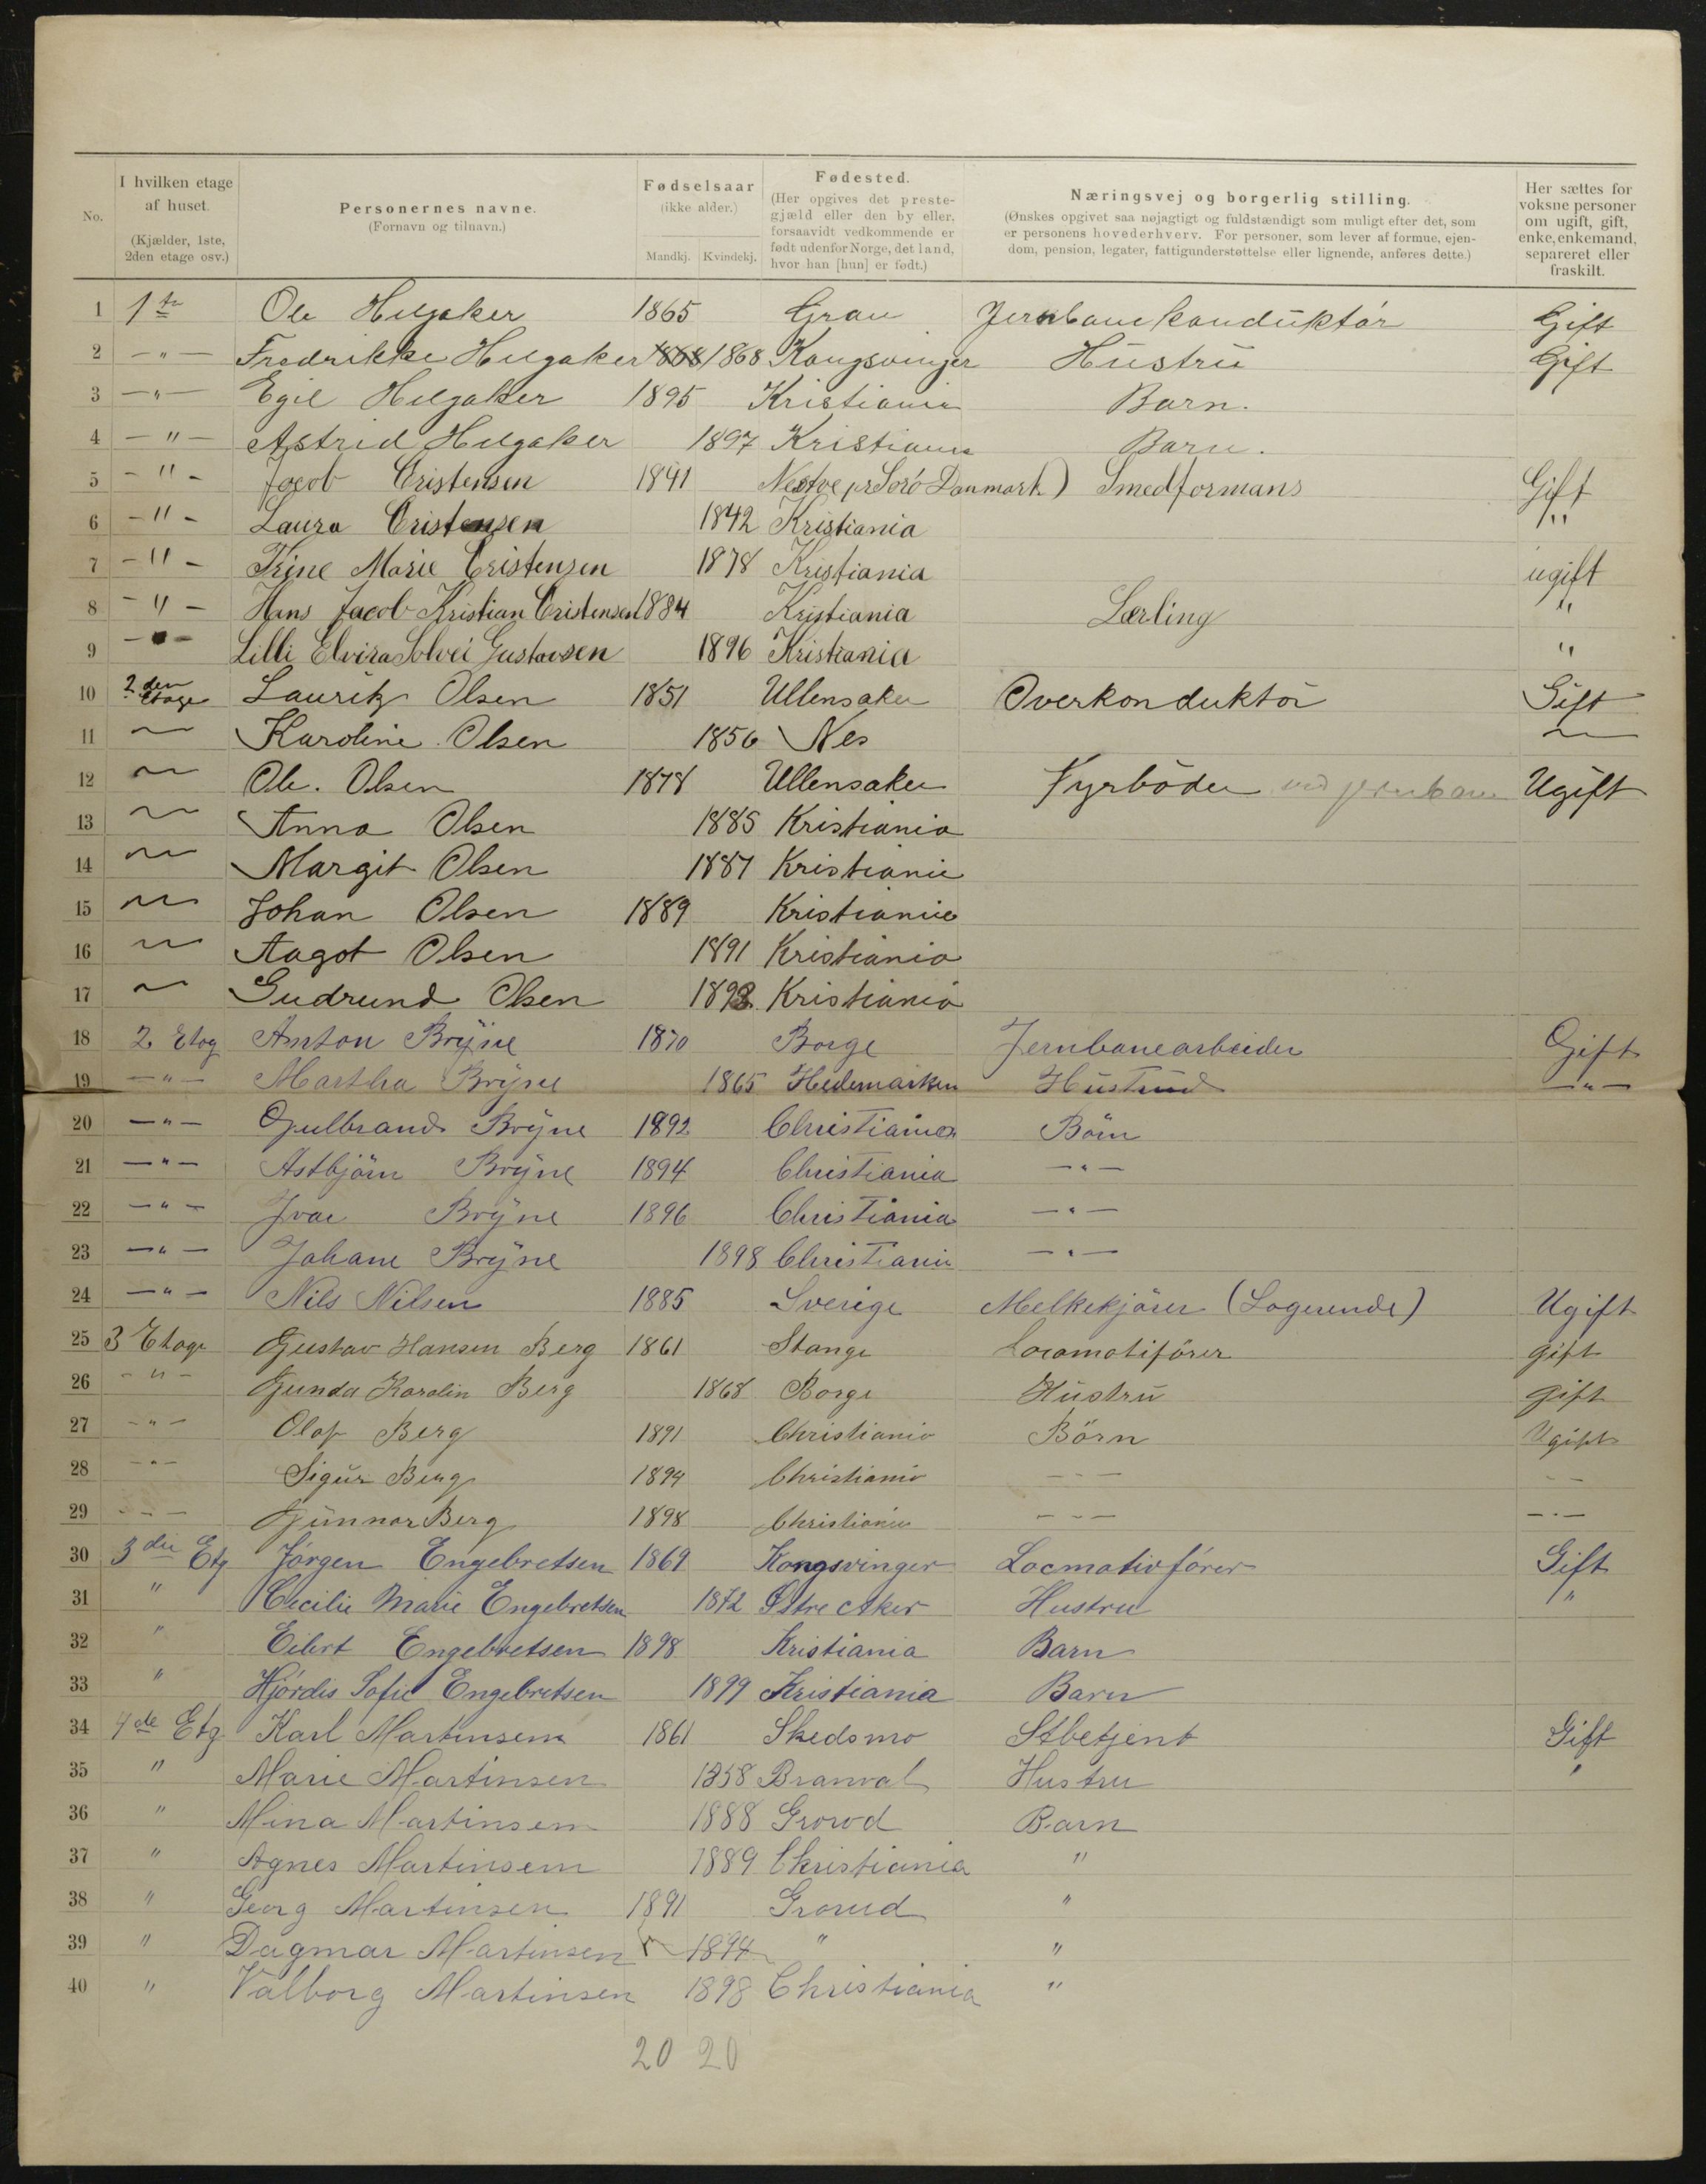 No.
I hvilken etage af huset. (Kjælder, 1ste, 2den etage osv.)
Personernes navne. (Fornavn og tilnavn.)
Fødselsaar (ikke alder.) Mandkj. Kvindekj.
Fødested. (Her opgives det prestegjæld eller den by eller, forsaavidt vedkommende er født udenfor Norge, det land, hvor han [hun] er født.)
Næringsvej og borgerlig stilling. (Ønskes opgivet saa nøjagtigt og fuldstændigt som muligt efter det, som er personens hovederhverv. For personer, som lever af formue, ejendom, pension, legater, fattigunderstøttelse eller lignende, anføres dette.)
Her sættes for voksne personer om ugift, gift, enke, enkemand, separeret eller fraskilt.
1 1ste Ole Helgaker 1865 Gran Jernbanekonduktór Gift
2 —"— Fredrikke Helgaker 1868 1868 Kongsvinger Hustru Gift
3 —"— Egil Helgaker 1895 Kristiania Barn.
4 —"— Astrid Helgaker 1897 Kristiania Barn.
5 —"— Jacob Cristensen 1841 pr Soró Danmark) Smedformans Gift
6 —"— Laura Cristensen 1842 Kristiania "
7 —"— Trine Marie Cristensen 1878 Kristiania ugift
8 —"— Hans Jacob Kristian Cristensen 1884 Kristiania Lærling "
9 —"— Lilli Elvira Solvei Gustavsen 1896 Kristiania "
10 2den Etage Lauritz Olsen 1851 Ullensaker Overkonduktör Gift
11 — Karoline Olsen 1856 Nes —
12 — Ole. Olsen 1878 Ullensaker Fyrböder ved jernbane Ugift
13 — Anna Olsen 1885 Kristiania
14 — Margit Olsen 1887 Kristiania
15 — Johan Olsen 1889 Kristiania
16 — Aagot Olsen 1891 Kristiania
17 — Gudrund Olsen 1893 Kristiania
18 2 Etag Anton Bryne 1870 Borge Jernbanearbeider Gift
19 —"— Martha Bryne 1865 Hedemarken Hustrud —"—
20 —"— Gulbrand Bryne 1892 Christiania Börn
21 —"— Astbjörn Bryne 1894 Christiania —"—
22 —"— Ivar Bryne 1896 Christiania —"—
23 —"— Johane Bryne 1898 Christiania —"—
24 —"— Nils Nilsen 1885 Sverige Melkekjörer (Logerende) Ugift
25 3 Etage Gustav Hansen Berg 1861 Stange Locomotiförer gift
26 —"— Gunda Karolin Berg 1868 Borge Hustru gift
27 —"— Olaf Berg 1891 Christiania Börn Ugift
28 —"— Sigur Berg 1894 Christiania —"— —"—
29 —"— Gunnar Berg 1898 Christiania —"— —"—
30 3die Etg Jörgen Engebretsen 1869 Kongsvinger Locmotivförer Gift
31 " Cecilie Marie Engebretsen 1872 Östre Aker Hustru "
32 " Eilert Engebretsen 1898 Kristiania Barn
33 " Hjördis Sofie Engebretsen 1899 Kristiania Barn
34 4de Etg Karl Martinsen 1861 Skedsmo Stbetjent Gift
35 " Marie Martinsen 1858 Branval Hustru "
36 " Mina Martinsen 1888 Grorod Barn
37 " Agnes Martinsen 1889 Christiania "
38 " Georg Martinsen 1891 Grorud "
39 " Dagmar Martinsen 1894 " "
40 " Valborg Martinsen 1898 Christiania "
20 20